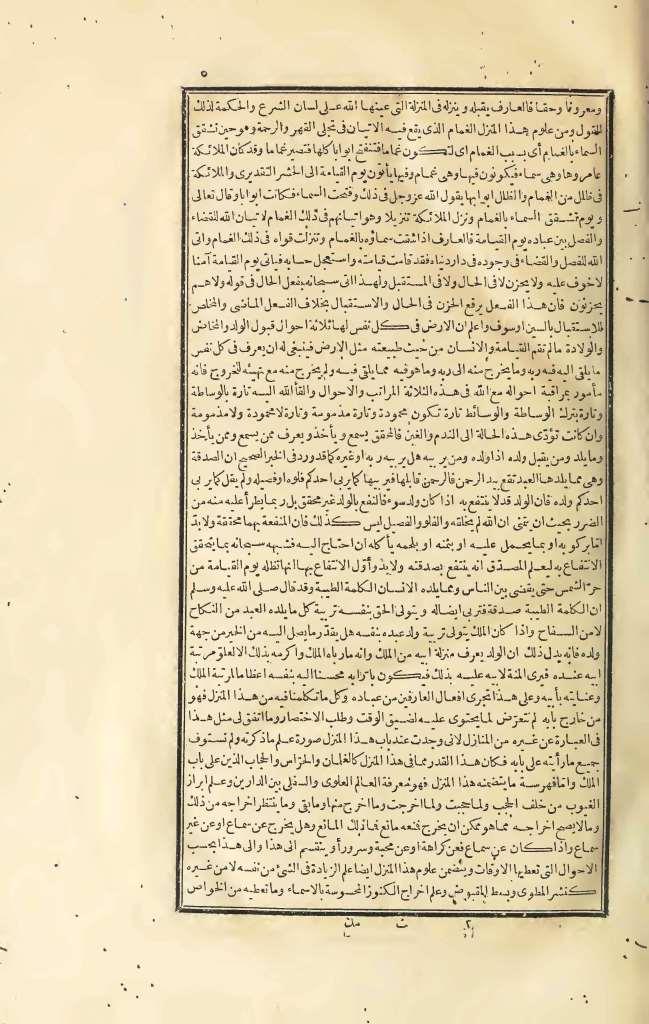 ومعروفا وحقا فالعارف يقبله وينزله فى المنزلة التى عينها الله على لسان الشرع والحكمة لذلك
القول ومن علوم هذا المنزل الغمام الذى يقع فيه الاتيان فى تجلى القهر والرحمة وهو حين تشقق
السماء بالغمام أى بسبب الغمام اى لتكون غماما فتنفتح ابوابا كلها فتصير غماما وقد كان الملائكة
عامروها وهى سماء فيكونون فيها وهى غمام وفيها يأتون يوم القيامة الى الحشر التقديرى والملائكة
فى ظلل من الغمام والظلل ابوابها يقول الله عز وجل فى ذلك وفتحت السماء فكانت ابوابا وقال تعالى
ويوم تشقق السماء بالغمام ونزل الملائكة تنزيلا وهو اتيانهم فى ذلك الغمام لاتيان الله للقضاء
والفصل بين عباده يوم القيامة فالعارف اذا شقت سماؤه بالغمام وتنزلت قواه فى ذلك الغمام واتى
الله للفصل والقضاء فى وجوده فى دار دنياه فقد قامت قيامته واستعجل حسابه فيأتى يوم القيامة آمنا
لا خوف عليه ولا يحزن لا فى الحال ولا فى المستقبل ولهذا اتى سبحانه بفعل الحال فى قوله ولا هم
يحزنون فان هذا الفعل يرفع الحزن فى الحال والاستقبال بخلاف الفعل الماضى والمخلص
للاستقبال بالسين او سوف واعلم ان الارض فى كل نفس لها ثلاثة احوال قبول الولد والمخاض
والولادة ما لم تقم القيامة والانسان من حيث طبيعته مثل الارض فينبغى له ان يعرف فى كل نفس
ما يلقى اليه فيه ربه وما يخرج منه الى ربه وما هو فيه مما يلقى فيه ولم يخرج منه مع تهيئه للخروج فانه
مأمور بمراقبة احواله مع الله فى هذه الثلاثة المراتب والاحوال والقأ الله اليه تارة بالوساطة
وتارة بترك الوساطة والوسائط تارة تكون محمودة وتارة مذمومة وتارة لا محمودة ولا مذمومة
وان كانت تؤدى هذه الحالة الى الندم والغبن فالمحقق يسمع ويأخذ ويعرف ممن يسمع وممن يأخذ
وما يلد ومن يقبل ولده اذا ولده ومن يربيه هل يربيه ربه او غيره كما قد ورد فى الخبر الصحيح ان الصدقة
وهى مما يلدها العبد تقع بيد الرحمن فالرحمن قابلها فيربيها كما يربى احدكم فلوه او فصيله ولم يقل كما يربى
احدكم ولده فان الولد قد لا ينتفع به اذا كان ولد سوء فالنفع بالولد غير محقق بل ربما يطرأ عليه منه من
الضرر بحيث ان يتمنى ان الله لم يخلقه والفلو والفصيل ليس كذلك فان المنفعة بهما محققة ولا بد
اما بركوبه او بما يحمل عليه او بثمنه او بلحمه يأكله ان احتاج اليه فشبهه سبحانه بما يتحقق
الانتفاع به ليعلم المصدق انه ينتفع بصدقته ولا بد وأول الانتفاع بها انها تظله يوم القيامة من
حر الشمس حتى يقضى بين الناس ومما يلده الانسان الكلمة الطيبة وقد قال صلى الله عليه وسلم
ان الكلمة الطيبة صدقة فتربى ايضا له ويتولى الحق بنفسه تربية كل ما يلده العبد من النكاح
لا من السفاح واذا كان الملك يتولى تربية ولد عبده بنفسه هل يقدر ما يصل اليه من الخير من جهة
ولده فانه يدل ذلك ان الولد يعرف منزلة ابيه من الملك وانه ما رباه الملك واكرمه بذلك الا لعلو مرتبة
ابيه عنده فيرى المنة لابيه عليه بذلك فيكون بارا به محسنا اليه بنفسه اعظاما لمرتبة الملك
وعنايته بأبيه وعلى هذا تجرى افعال العارفين من عباده وكل ما تكلمنا فيه من هذا المنزل فهو
من خارج بابه لم نتعرض لما يحتوى عليه لضيق الوقت وطلب الاختصار وما اتفق لى مثل هذا
فى العبارة عن غيره من المنازل لانى وجدت عند باب هذا المنزل صورة علم ما ذكرته ولم نستوف
جميع ما رأيته على بابه فكان هذا القدر مما فى هذا المنزل كالغلمان والحراس والحجاب الذين على باب
الملك واما فهرسة ما يتضمنه هذا المنزل فهو معرفة العالم العلوى والسفلى بين الدارين وعلم ابراز
الغيوب من خلف الحجب ولما حجبت ولما اخرجت وما اخرج منها وما بقى وما ينتظر اخراجه من ذلك
وما لا يصح اخراجه مما هو ممكن ان يخرج فنعه مانع فما ذلك المانع وهل يخرج عن سماع او عن غير
سماع واذا كان عن سماع فعن كراهة او عن محبة وسرور أو ينقسم الى هذا والى هذا بحسب
الاحوال التى تعطيها الاوقات ويتضمن علوم هذا المنزل ايضا علم الزيادة فى الشئ من نفسه لا من غيره
كنشر المطوى وبسط المقبوض وعلم اخراج الكنوز المحسوسة بالاسماء وما تعطيه من الخواص